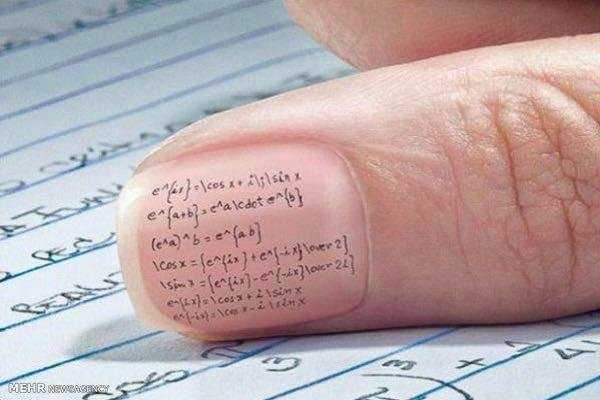 e^{ix}=\cos x+i\,\sin x
e^{a+b}=e^a\cdot e^{b}
(e^a)^b = e^{ab}
\cos x = {e^{ix} + e^{-ix}\over 2}
\sin x = {e^{ix} - e^{-ix}\over 2i}
e^{ix}=\cos x + i \sin x
e^{-ix}=\cos x - i \sin x
MEHR NEWSAGENCY